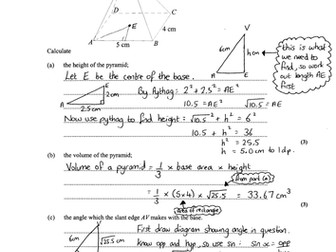 D
C
E
4 cm
A
5 cm
B
V
6cm
h cm
A
E
this is what
we need to
find, so work
out length AE
first
Calculate
(a) the height of the pyramid;
Let E be the centre of the base.
E
2cm
A
2.5cm
By Pythag: 2² + 2.5² = AE²
10.5 = AE² √10.5 = AE
Now use pythag to find height: √10.5² + h² = 6²
10.5 + h² = 36
h² = 25.5
h = 5.0cm to 1dp.
(3)
(b) the volume of the pyramid;
Volume of a pyramid = 1/3 × base area × height
from part (a)
= 1/3 (5×4) × √25.5 = 33.67 cm³
area of rectangle
(2)
(c) the angle which the slant edge AV makes with the base.
V
6cm
√25.5cm
First draw diagram showing angle in question.
Know opp and hyp, so use sin: sin x = opp